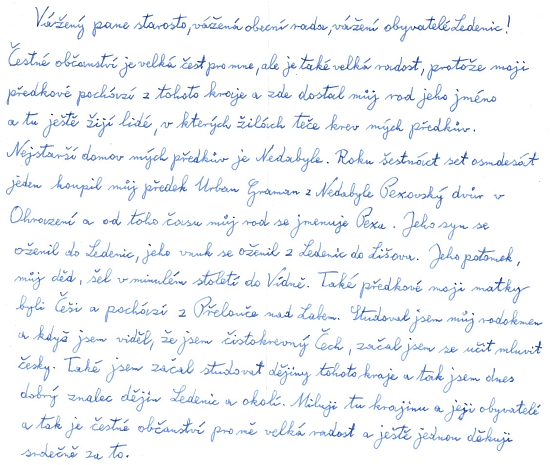 Vážený pane starosto, vážená obecní rada, vážení obyvatelé Ledenic!
Čestné občanství je velká čest pro mne, ale je také velká radost, protože moji
předkové pochází z tohoto kraje a zde dostal můj rod jeho jméno
a tu ještě žijí lidé, v kterých žilách teče krev mých předkův.
Nejstarší domov mých předkův je Nedabyle. Roku šestnáct set osmdesát
jeden koupil můj předek Urban Graman z Nedabyle Pexovský dvůr v
Ohrazení a od toho času můj rod se jmenuje Pexa. Jeho syn se
oženil do Ledenic, jeho vnuk se oženil z Ledenic do Lišova. Jeho potomek,
můj děd, šel v minulém století do Vídně. Také předkové moji matky
byli Češi a pochází z Přelouče nad Labem. Studoval jsem můj rodokmen
a když jsem viděl, že jsem čistokrevný Čech, začal jsem se učit mluvit
česky. Také jsem začal studovat dějiny tohoto kraje a tak jsem dnes
dobrý znalec dějin Ledenic a okolí. Miluji tu krajinu a její obyvatelé
a tak je čestné občanství pro mě velká radost a ještě jednou děkuji
srdečně za to.